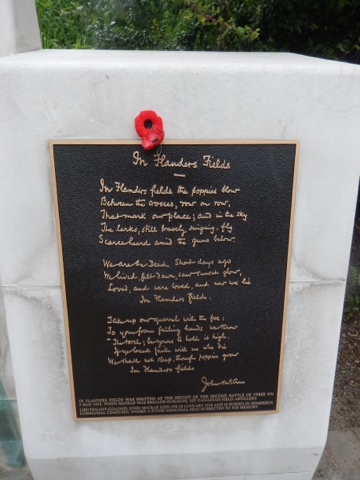 In Flanders Fields
In Flanders fields the poppies blow
Between the crosses, row on row,
That mark our place; and in the sky
The larks, still bravely singing, fly
Scarce heard amid the guns below.
We are the Dead. Short days ago
We lived, felt dawn, saw sunset glow,
Loved, and were loved, and now we lie
In Flanders fields.
Take up our quarrel with the foe:
To you from failing hands we throw
The torch; be yours to hold it high.
If ye break faith with us who die
We shall not sleep, though poppies grow
In Flanders fields
John McCrae
IN FLANDERS FIELDS WAS WRITTEN AT THE HEIGHT OF THE SECOND BATTLE OF YPRES ON
3 MAY 1915, WHEN MCCRAE WAS BRIGADE-SURGEON, 1ST CANADIAN FIELD ARTILLERY.
LIEUTENANT-COLONEL JOHN MCCRAE DIED ON 28 JANUARY 1918 AND IS BURIED IN WIMEREUX
COMMUNAL CEMETERY, WHERE A STONE MEMORIAL SEAT IS ERECTED TO HIS MEMORY.